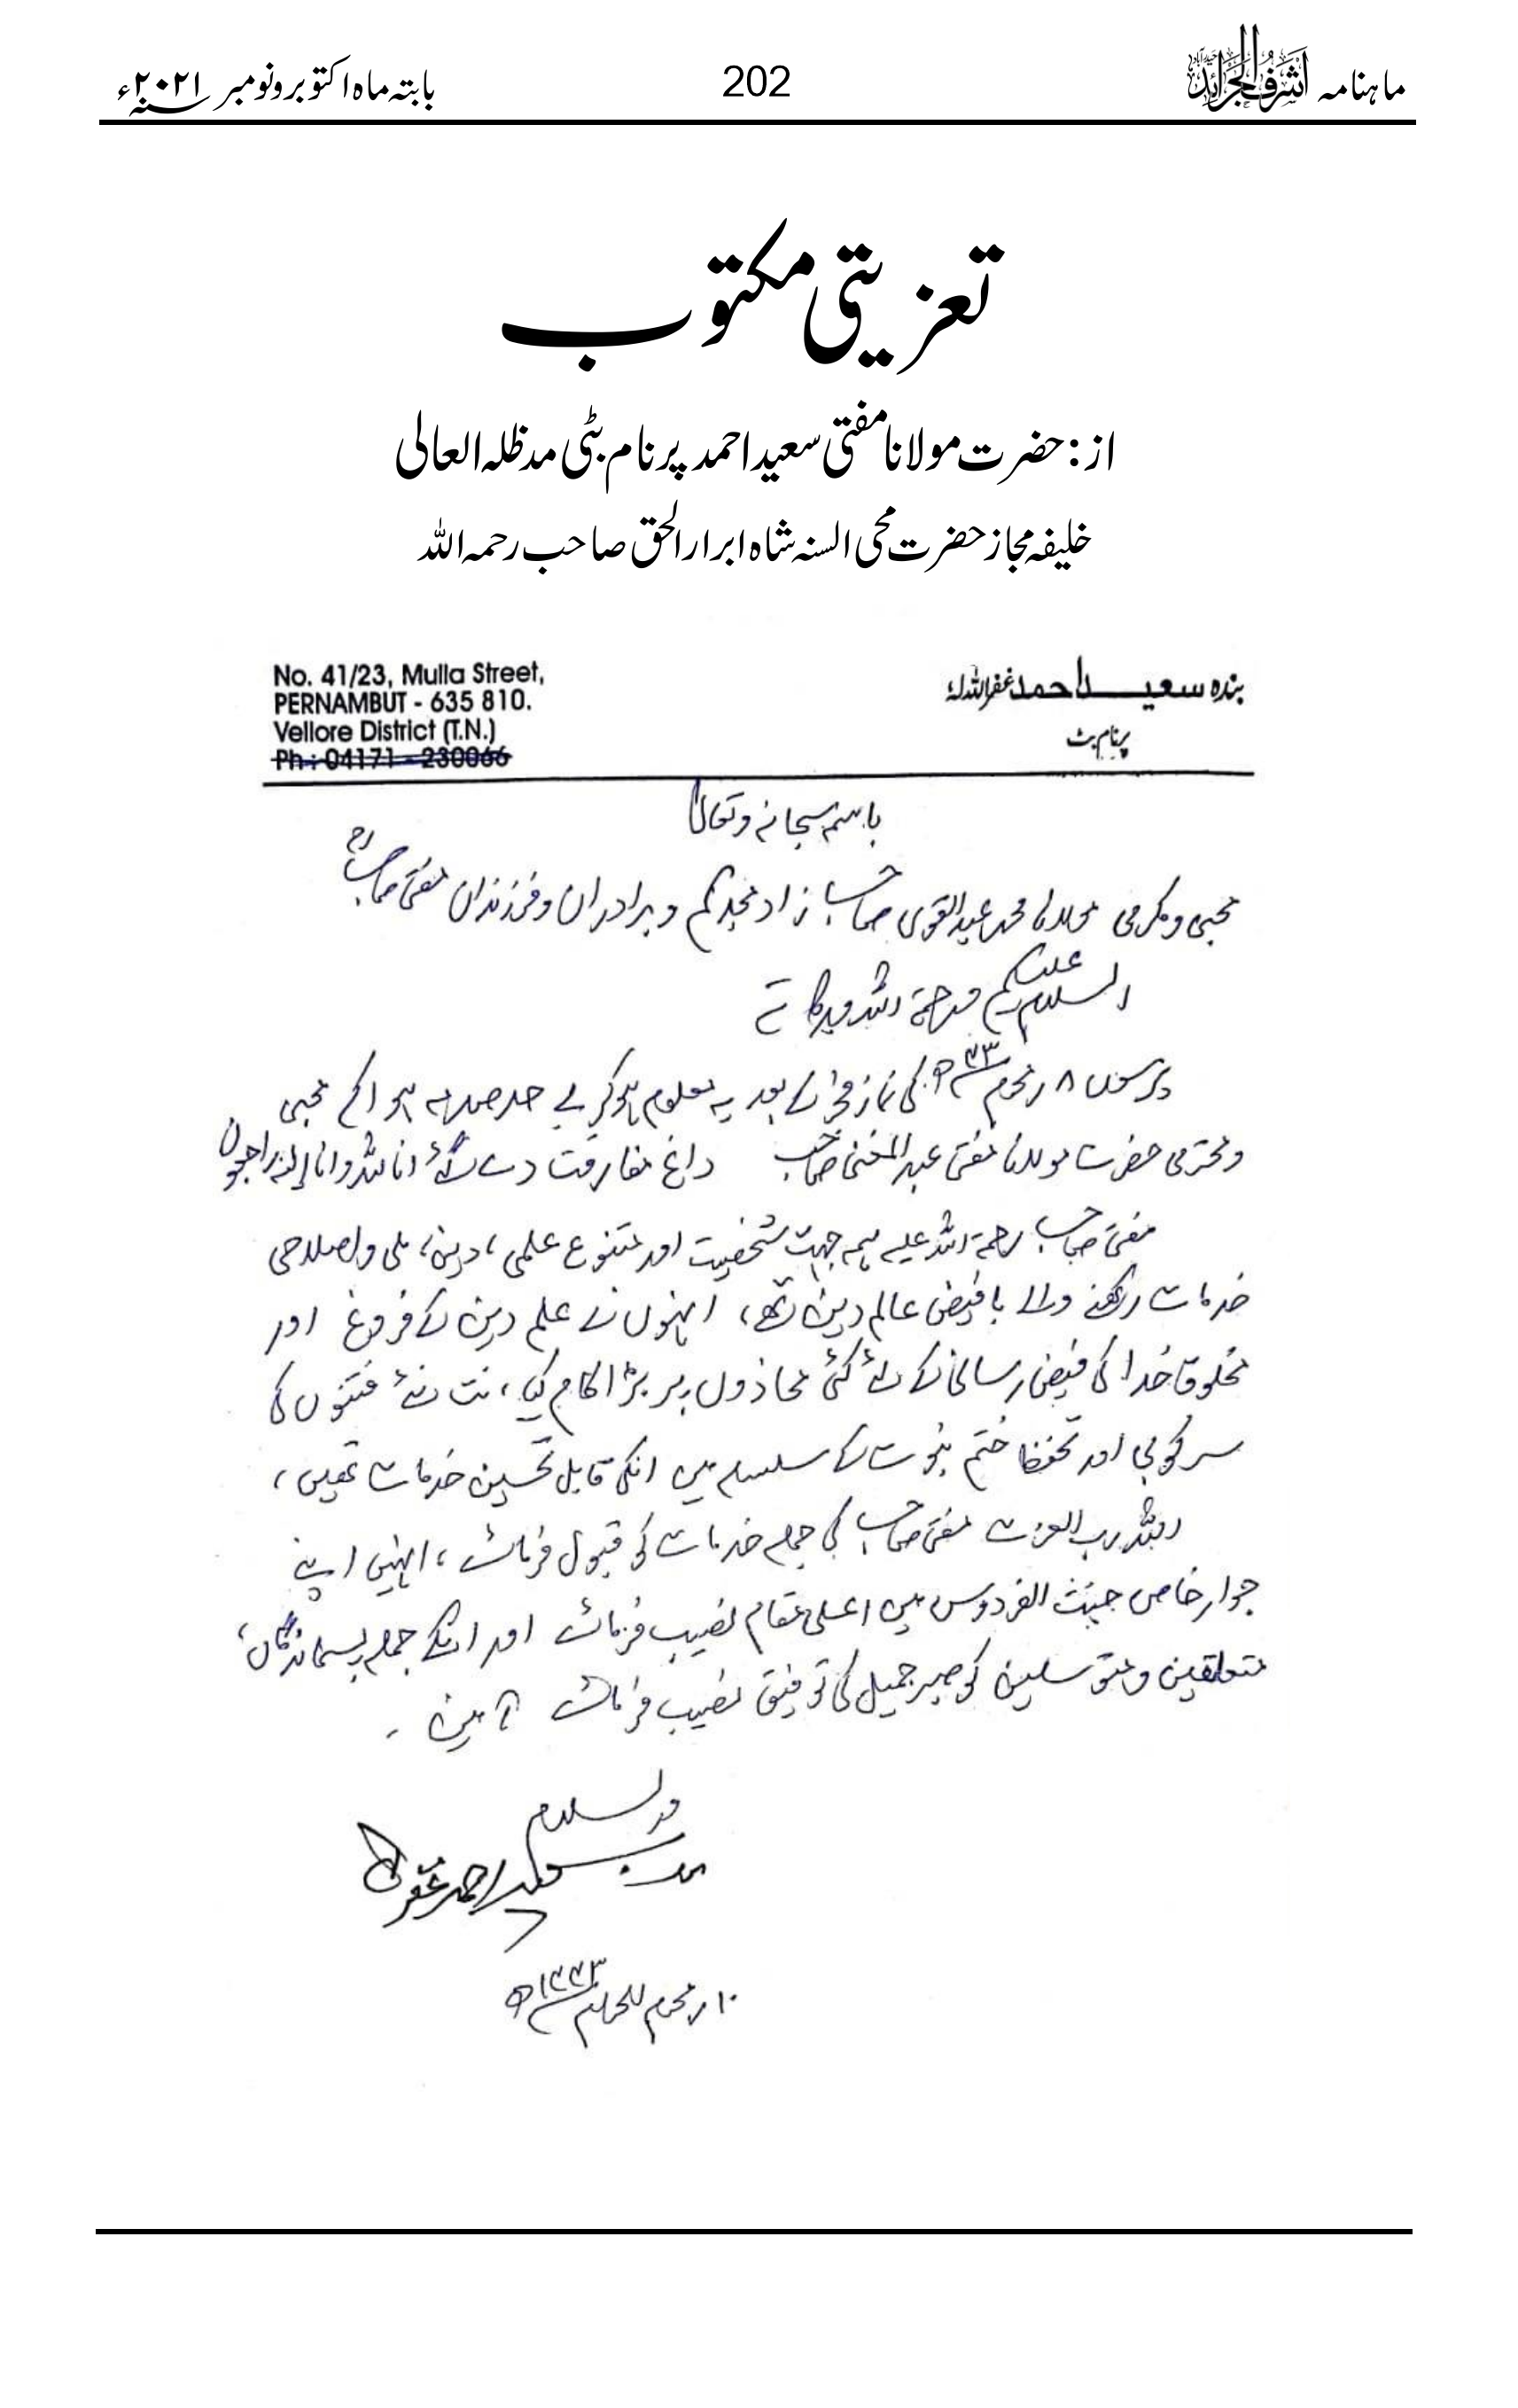 ماہنامہ اشرف الجرائد حیدرآباد
202
بابتہ ماہ اکتوبر و نومبر ۲۰۲۱ء
تعزیتی مکتوب
از: حضرت مولانا مفتی سعید احمد پرنام بٹی مدظلہ العالی
خلیفہ مجاز حضرت محی السنہ شاہ ابرار الحق صاحب رحمہ اللہ
بندہ سعید احمد غفراللہ لہٗ
پرنام بٹ
No. 41/23, Mulla Street,
PERNAMBUT - 635 810.
Vellore District (T.N.)
Ph : 04171 - 230066
باسمہ سبحانہ وتعالیٰ
محبی ومکرمی مولانا محمد عبدالقوی صاحب زاد مجدکم و برادران و فرزندان مفتی صاحبؒ
السلام علیکم ورحمۃ اللہ وبرکاتہ
پرسوں ۸ر محرم ۴۳ھ کی نماز فجر کے بعد یہ معلوم ہوکر بے حد صدمہ ہوا کہ محبی
ومحترمی حضرت مولانا مفتی عبدالمغنی صاحب داغ مفارقت دے گئے انا للہ وانا الیہ راجعون
مفتی صاحب رحمۃ اللہ علیہ ہمہ جہت شخصیت اور متنوع علمی، دینی، ملی واصلاحی
خدمات رکھنے والے بافیض عالم دین تھے، انہوں نے علم دین کے فروغ اور
مخلوق خدا کی فیض رسانی کے لئے کئی محاذوں پر بڑا کام کیا، نت نئے فتنوں کی
سرکوبی اور تحفظ ختم نبوت کے سلسلہ میں انکی قابل تحسین خدمات تھیں،
اللہ رب العزت مفتی صاحب کی جملہ خدمات کو قبول فرمائے، انہیں اپنے
جوار خاص جنت الفردوس میں اعلیٰ مقام نصیب فرمائے اور انکے جملہ پسماندگان،
متعلقین ومتوسلین کو صبر جمیل کی توفیق نصیب فرمائے آمین۔
والسلام
بندہ سعید احمد غفرلہ
۱۰ر محرم الحرام ۱۴۴۳ھ